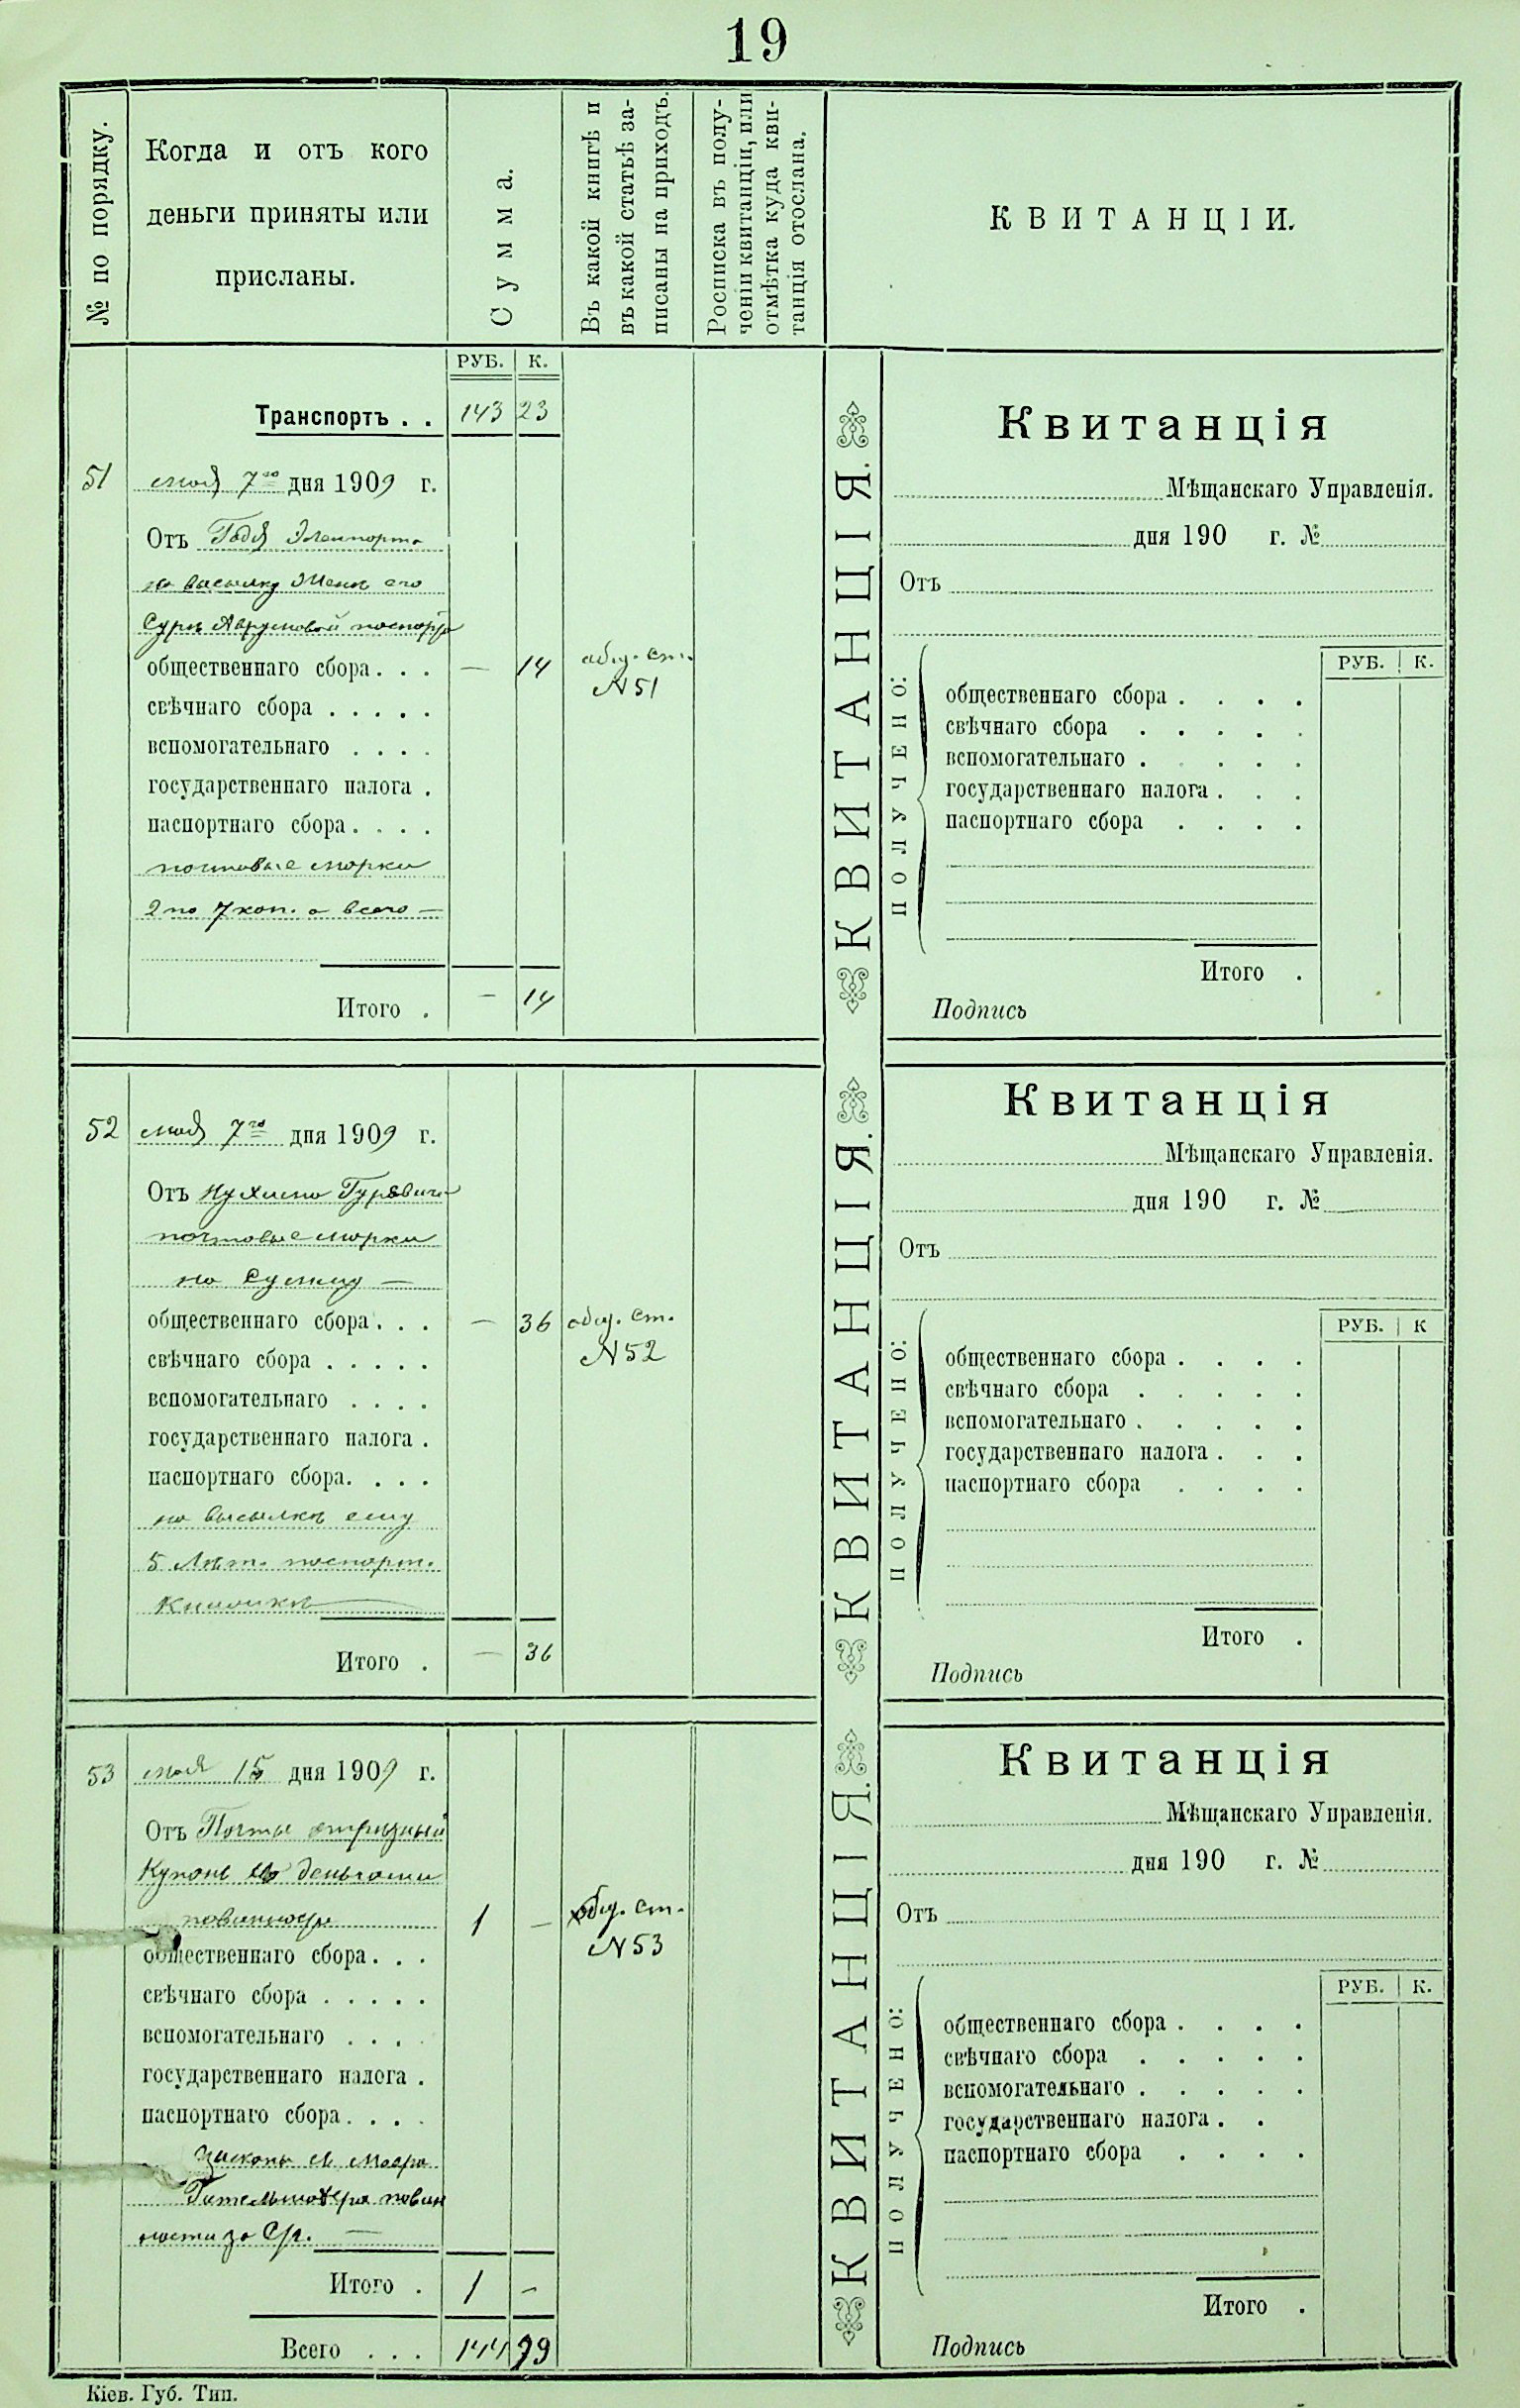 19
№ по порядку.
Когда и отъ кого
деньги приняты или
присланы.
Сумма.
Въ какой книгѣ и
въ какой статьѣ за-
писаны на приходъ.
Росписка въ полу-
ченіи квитанціи, или
отмѣтка куда кви-
танція отослана.
КВИТАНЦІИ.
РУБ. К.
Транспортъ . . 143 23
51 мая 7го дня 1909 г.
Отъ
на высылку жене его
Суре паспорта
общественнаго сбора. . . — 14 общ. ст.
N 51
свѣчнаго сбора . . . . .
вспомогательнаго . . . .
государственнаго налога .
паспортнаго сбора. . . .
почтовые марки
2 по 7 коп. а всего —
Итого . — 14
КВИТАНЦІЯ.
Квитанція
Мѣщанскаго Управленія.
дня 190 г. №
Отъ
РУБ. К.
ПОЛУЧЕНО:
общественнаго сбора . . . .
свѣчнаго сбора . . . . .
вспомогательнаго . . . . .
государственнаго налога . . .
паспортнаго сбора . . . .
Итого .
Подпись
52 мая 7го дня 1909 г.
Отъ Нухима Гуревича
почтовые марки
на сумму —
общественнаго сбора. . . — 36 общ. ст.
N 52
свѣчнаго сбора . . . . .
вспомогательнаго . . . .
государственнаго налога .
паспортнаго сбора. . . .
на высылкѣ ему
5 лѣт. паспорт.
книжки
Итого . — 36
КВИТАНЦІЯ.
Квитанція
Мѣщанскаго Управленія.
дня 190 г. №
Отъ
РУБ. К
ПОЛУЧЕНО:
общественнаго сбора . . . .
свѣчнаго сбора . . . . .
вспомогательнаго . . . . .
государственнаго налога . . .
паспортнаго сбора . . . .
Итого .
Подпись
53 мая 15 дня 1909 г.
Отъ Почты отрѣзный
Купонъ деньгами
1 — общ. ст.
N 53
общественнаго сбора. . .
свѣчнаго сбора . . . . .
вспомогательнаго . . .
государственнаго налога .
паспортнаго сбора. . . .
повин
ности за
Итого . 1 —
Всего . . . 144 39
КВИТАНЦІЯ.
Квитанція
Мѣщанскаго Управленія.
дня 190 г. №
Отъ
РУБ. К.
ПОЛУЧЕНО:
общественнаго сбора . . . .
свѣчнаго сбора . . . . .
вспомогательнаго . . . . .
государственнаго налога . .
паспортнаго сбора . . . .
Итого .
Подпись
Кіев. Губ. Тип.